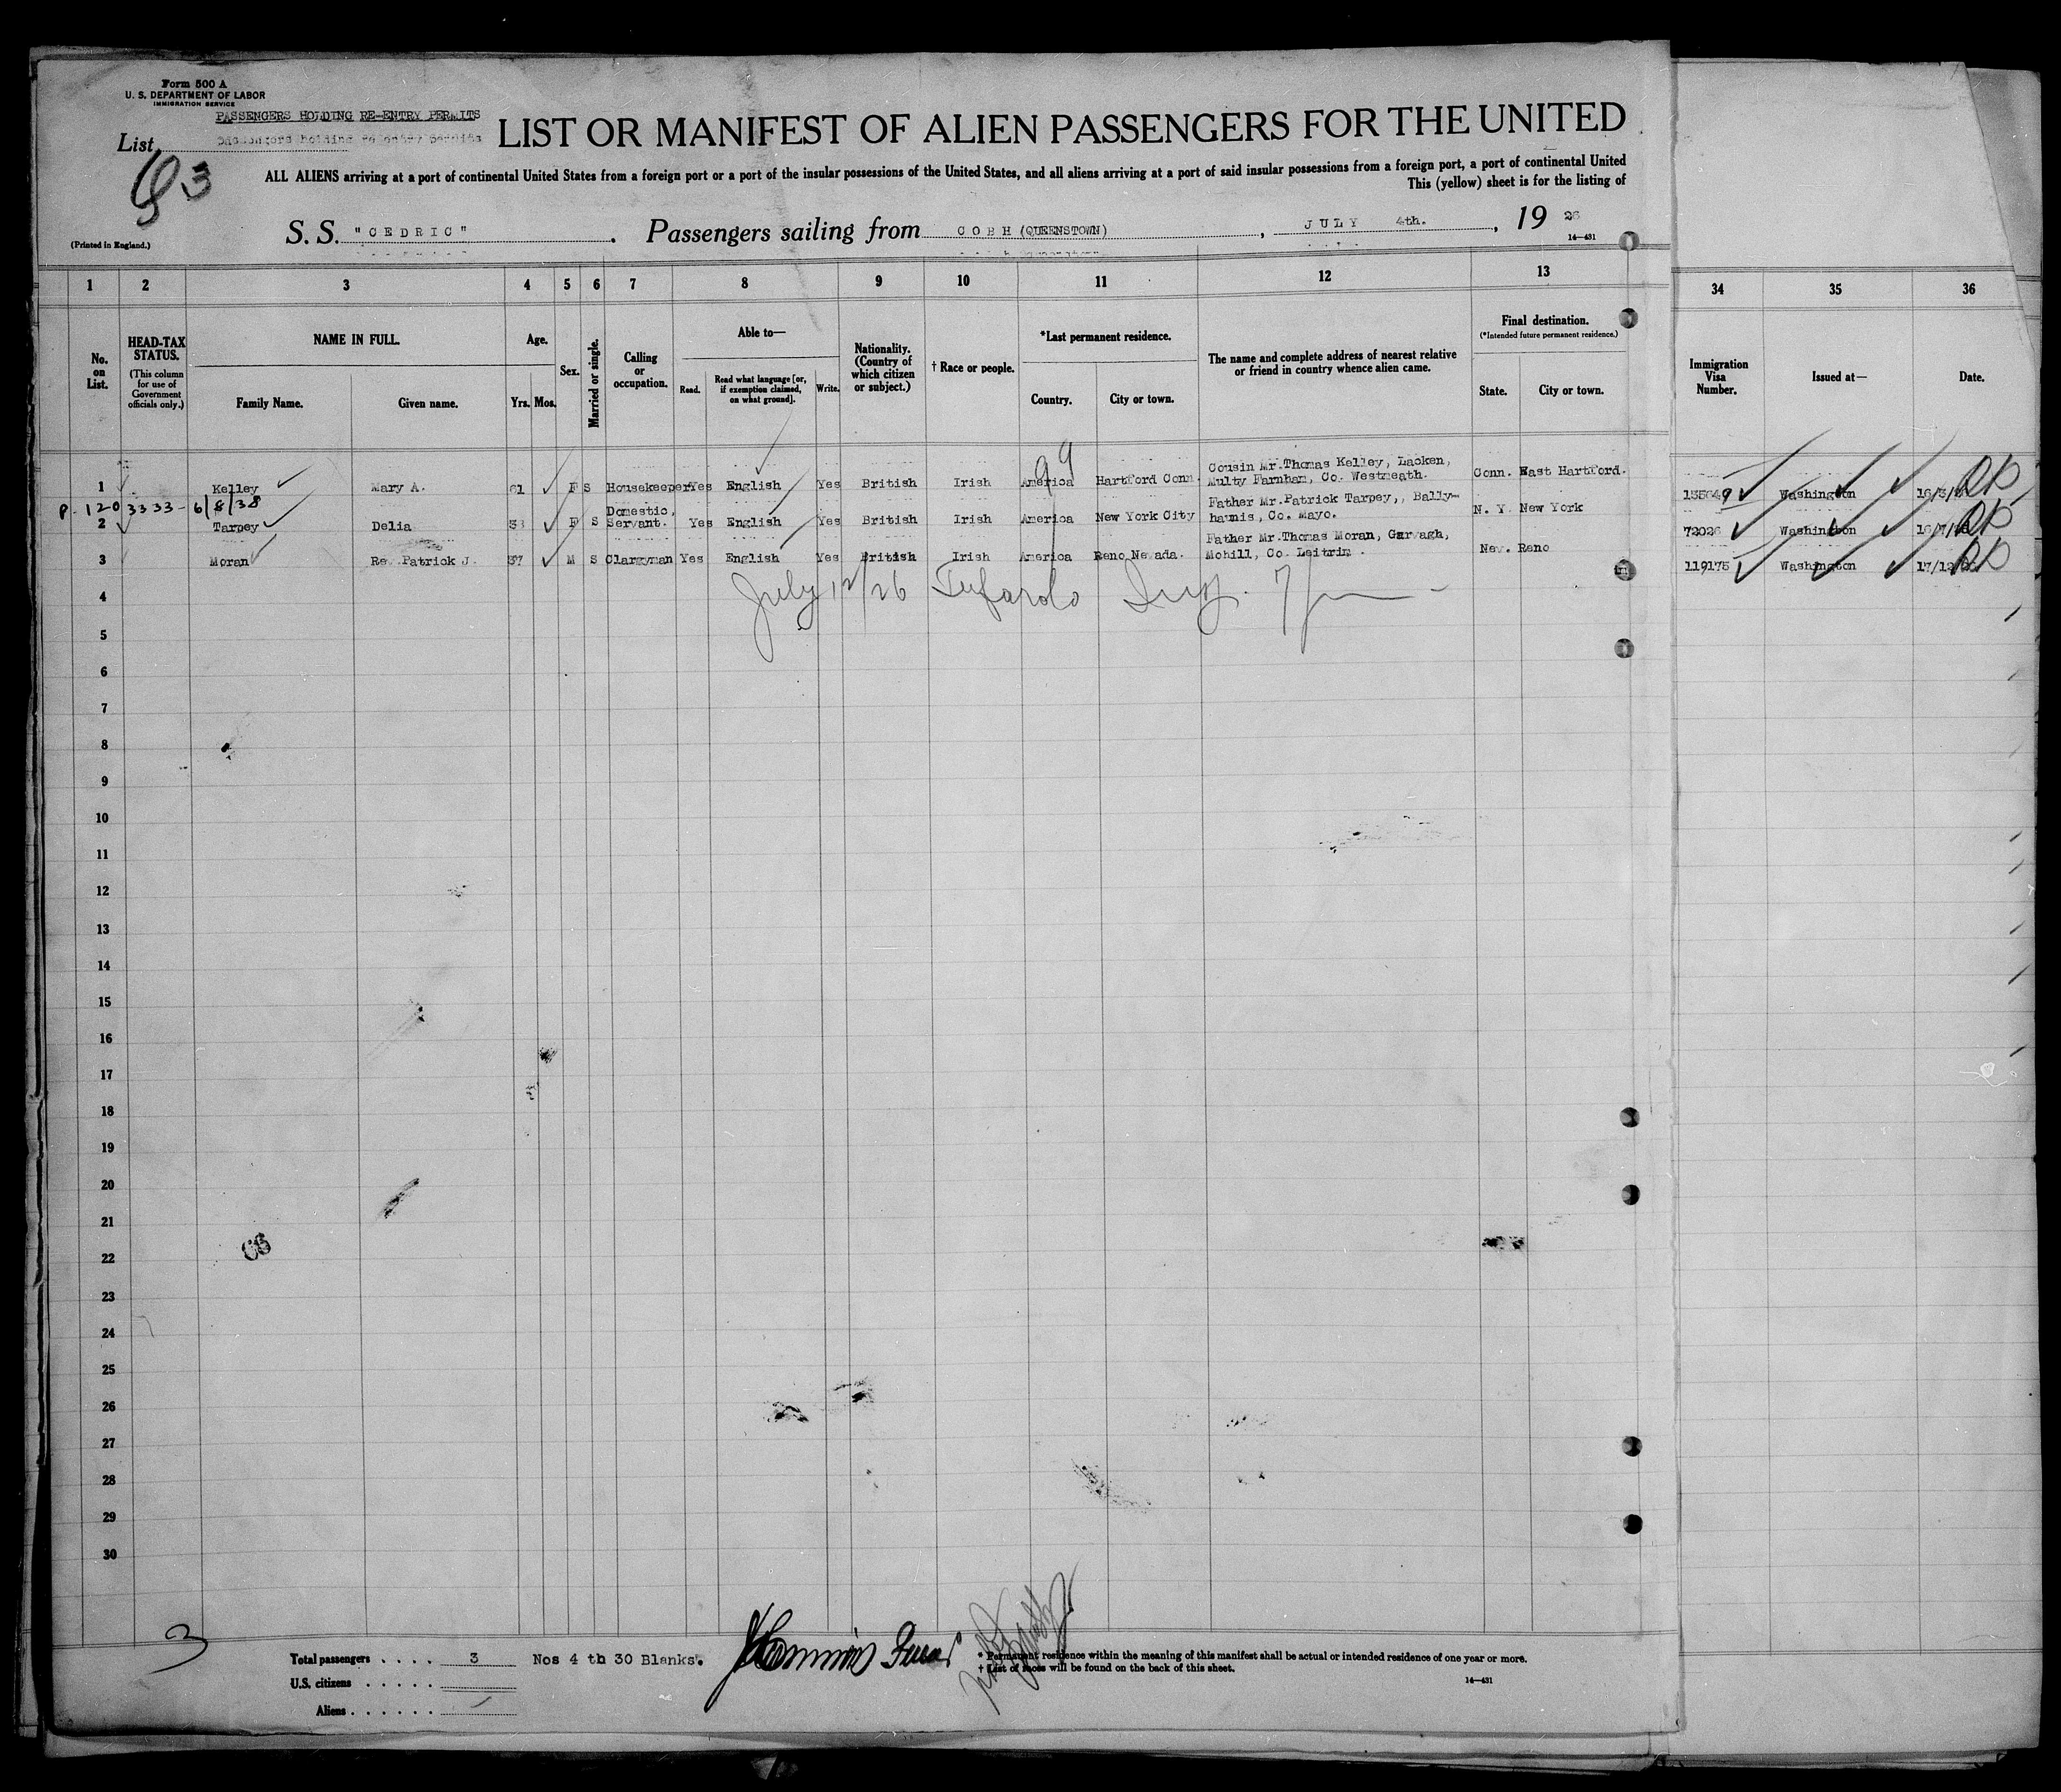 Form 500 A
U. S. DEPARTMENT OF LABOR
IMMIGRATION SERVICE
PASSENGERS HOLDING RE-ENTRY PERMITS
List
3
LIST OR MANIFEST OF ALIEN PASSENGERS FOR THE UNITED
ALL ALIENS arriving at a port of continental United States from a foreign port or a port of the insular possessions of the United States, and all aliens arriving at a port of said insular possessions from a foreign port, a port of continental United
This (yellow) sheet is for the listing of
(Printed in England.)
S. S. "CEDRIC" . Passengers sailing from COBH (QUEENSTOWN) , JULY 4th. , 19 26
14—431
1 2 3 4 5 6 7 8 9 10 11 12 13 34 35 36
No. on List.
HEAD-TAX STATUS. (This column for use of Government officials only.)
NAME IN FULL.
Family Name. Given name.
Age.
Yrs. Mos.
Sex.
Married or single.
Calling or occupation.
Able to—
Read. Read what language [or, if exemption claimed, on what ground]. Write.
Nationality. (Country of which citizen or subject.)
† Race or people.
*Last permanent residence.
Country. City or town.
The name and complete address of nearest relative or friend in country whence alien came.
Final destination.
(*Intended future permanent residence.)
State. City or town.
Immigration Visa Number.
Issued at—
Date.
1 Kelley Mary A. 61 F S Housekeeper Yes English Yes British Irish America Hartford Conn. Cousin Mr. Thomas Kelley, Lacken, Multy Farnham, Co. Westmeath. Conn. East Hartford. Washington
P-120 3333 - 6/8/38
2 Tarpey Delia F S Domestic, Servant. Yes English Yes British Irish America New York City Father Mr. Patrick Tarpey,, Ballyhaunis, Co. Mayo. N. Y. New York 72026 Washington
3 Moran Rev. Patrick J. 37 M S Clargyman Yes English Yes British Irish America Reno Nevada. Father Mr. Thomas Moran, Garvagh, Mohill, Co. Leitrim. Nev. Reno 119175 Washington
99
July 12/26
4
5
6
7
8
9
10
11
12
13
14
15
16
17
18
19
20
21
22
23
24
25
26
27
28
29
30
3
Total passengers . . . . 3 Nos 4 th 30 Blanks.
U.S. citizens . . . . .
Aliens . . . . . .
* Permanent residence within the meaning of this manifest shall be actual or intended residence of one year or more.
† List of races will be found on the back of this sheet.
14—431